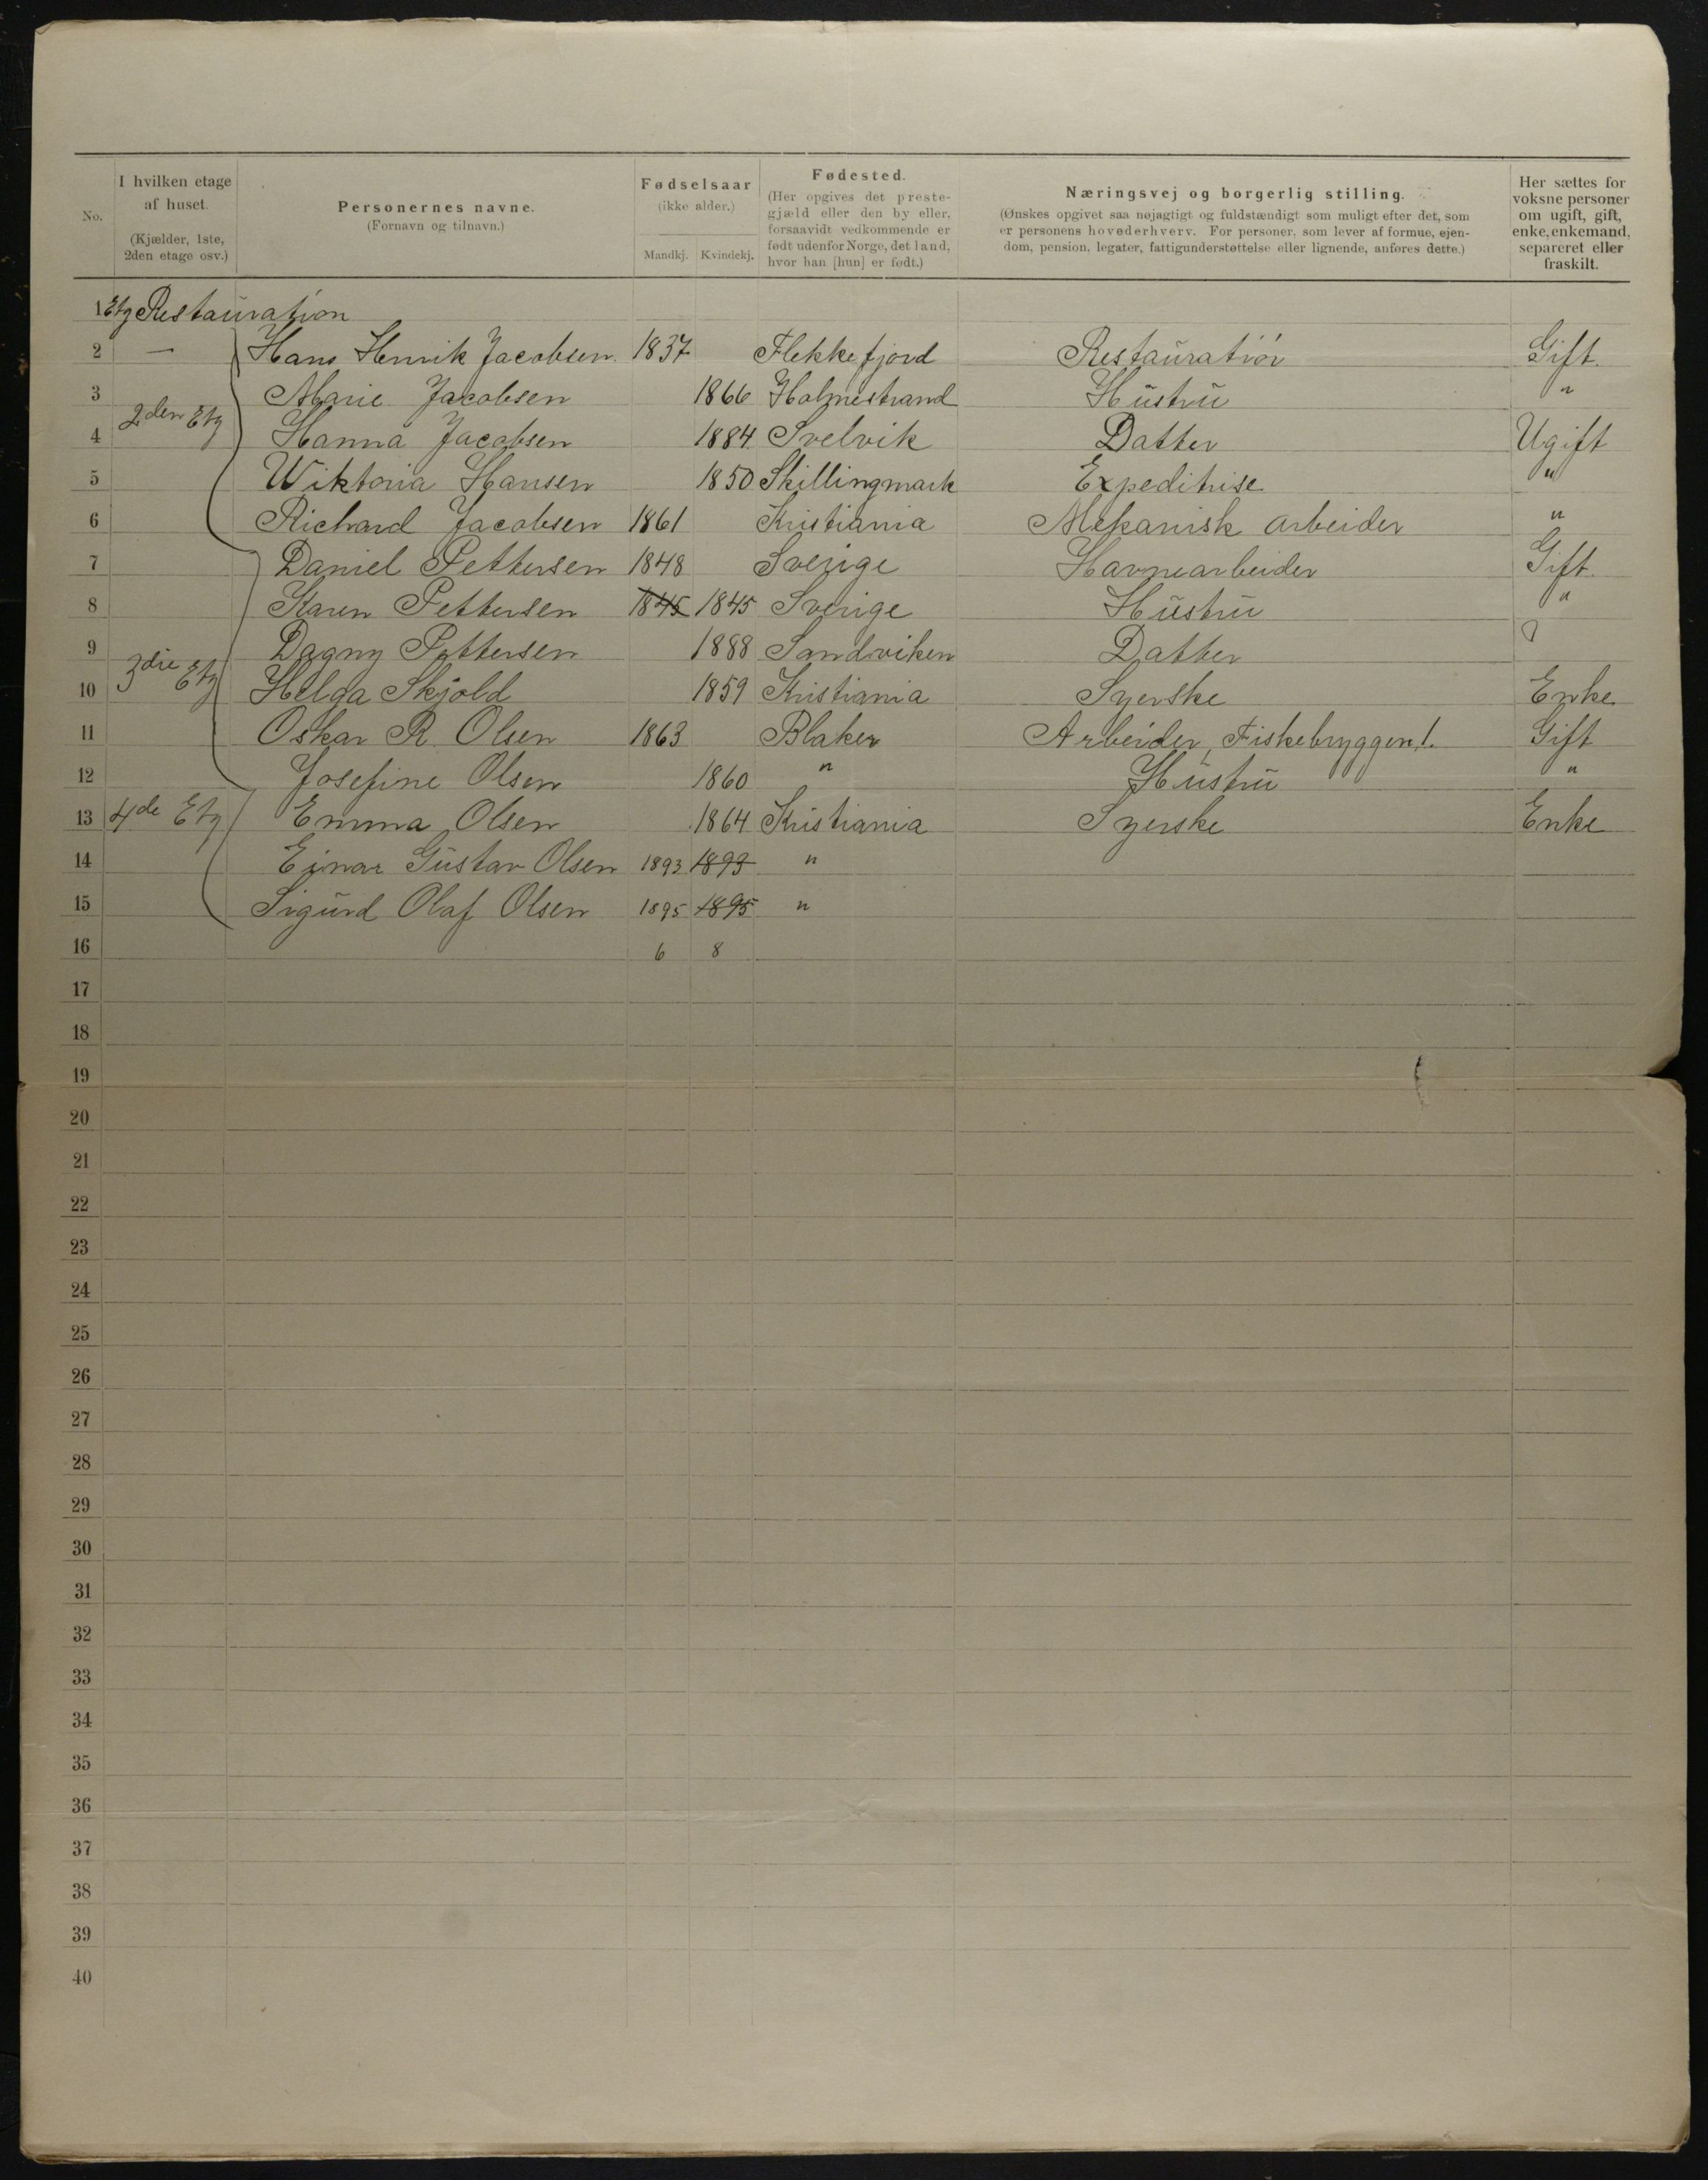 No. | I hvilken etage af huset. (Kjælder, 1ste, 2den etage osv.) | Personernes navne. (Fornavn og tilnavn.) | Fødselsaar (ikke alder.) Mandkj. | Kvindekj. | Fødested. (Her opgives det prestegjæld eller den by eller, forsaavidt vedkommende er født udenfor Norge, det land, hvor han [hun] er født.) | Næringsvej og borgerlig stilling. (Ønskes opgivet saa nøjagtigt og fuldstændigt som muligt efter det, som er personens hovederhverv. For personer, som lever af formue, ejendom, pension, legater, fattigunderstøttelse eller lignende, anføres dette.) | Her sættes for voksne personer om ugift, gift, enke, enkemand, separeret eller fraskilt.
1 Etg Restauration
2 — Hans Henrik Jacobsen 1837 Flekkefjord Restauratiør Gift.
3 Marie Jacobsen 1866 Holmestrand Hustru "
2den Etg
4 Hanna Jacobsen 1884 Svelvik Datter Ugift
5 Wiktoria Hansen 1850 Skillingmark Expeditrise "
6 Richard Jacobsen 1861 Kristiania Mekanisk arbeider "
7 Daniel Pettersen 1848 Sverige Havnearbeider Gift.
8 Karen Pettersen 1845 1845 Sverige Hustru "
9 Dagny Pettersen 1888 Sandviken Datter
3die Etg
10 Helga Skjold 1859 Kristiania Syerske Enke
11 Oskar R. Olsen 1863 Blaker Arbeider, Fiskebryggen 1. Gift
12 Josefine Olsen 1860 " Hustru "
13 4de Etg Emma Olsen 1864 Kristiania Syerske Enke
14 Einar Gustav Olsen 1893 1893 "
15 Sigurd Olaf Olsen 1895 1895 "
16 6 8
17
18
19
20
21
22
23
24
25
26
27
28
29
30
31
32
33
34
35
36
37
38
39
40